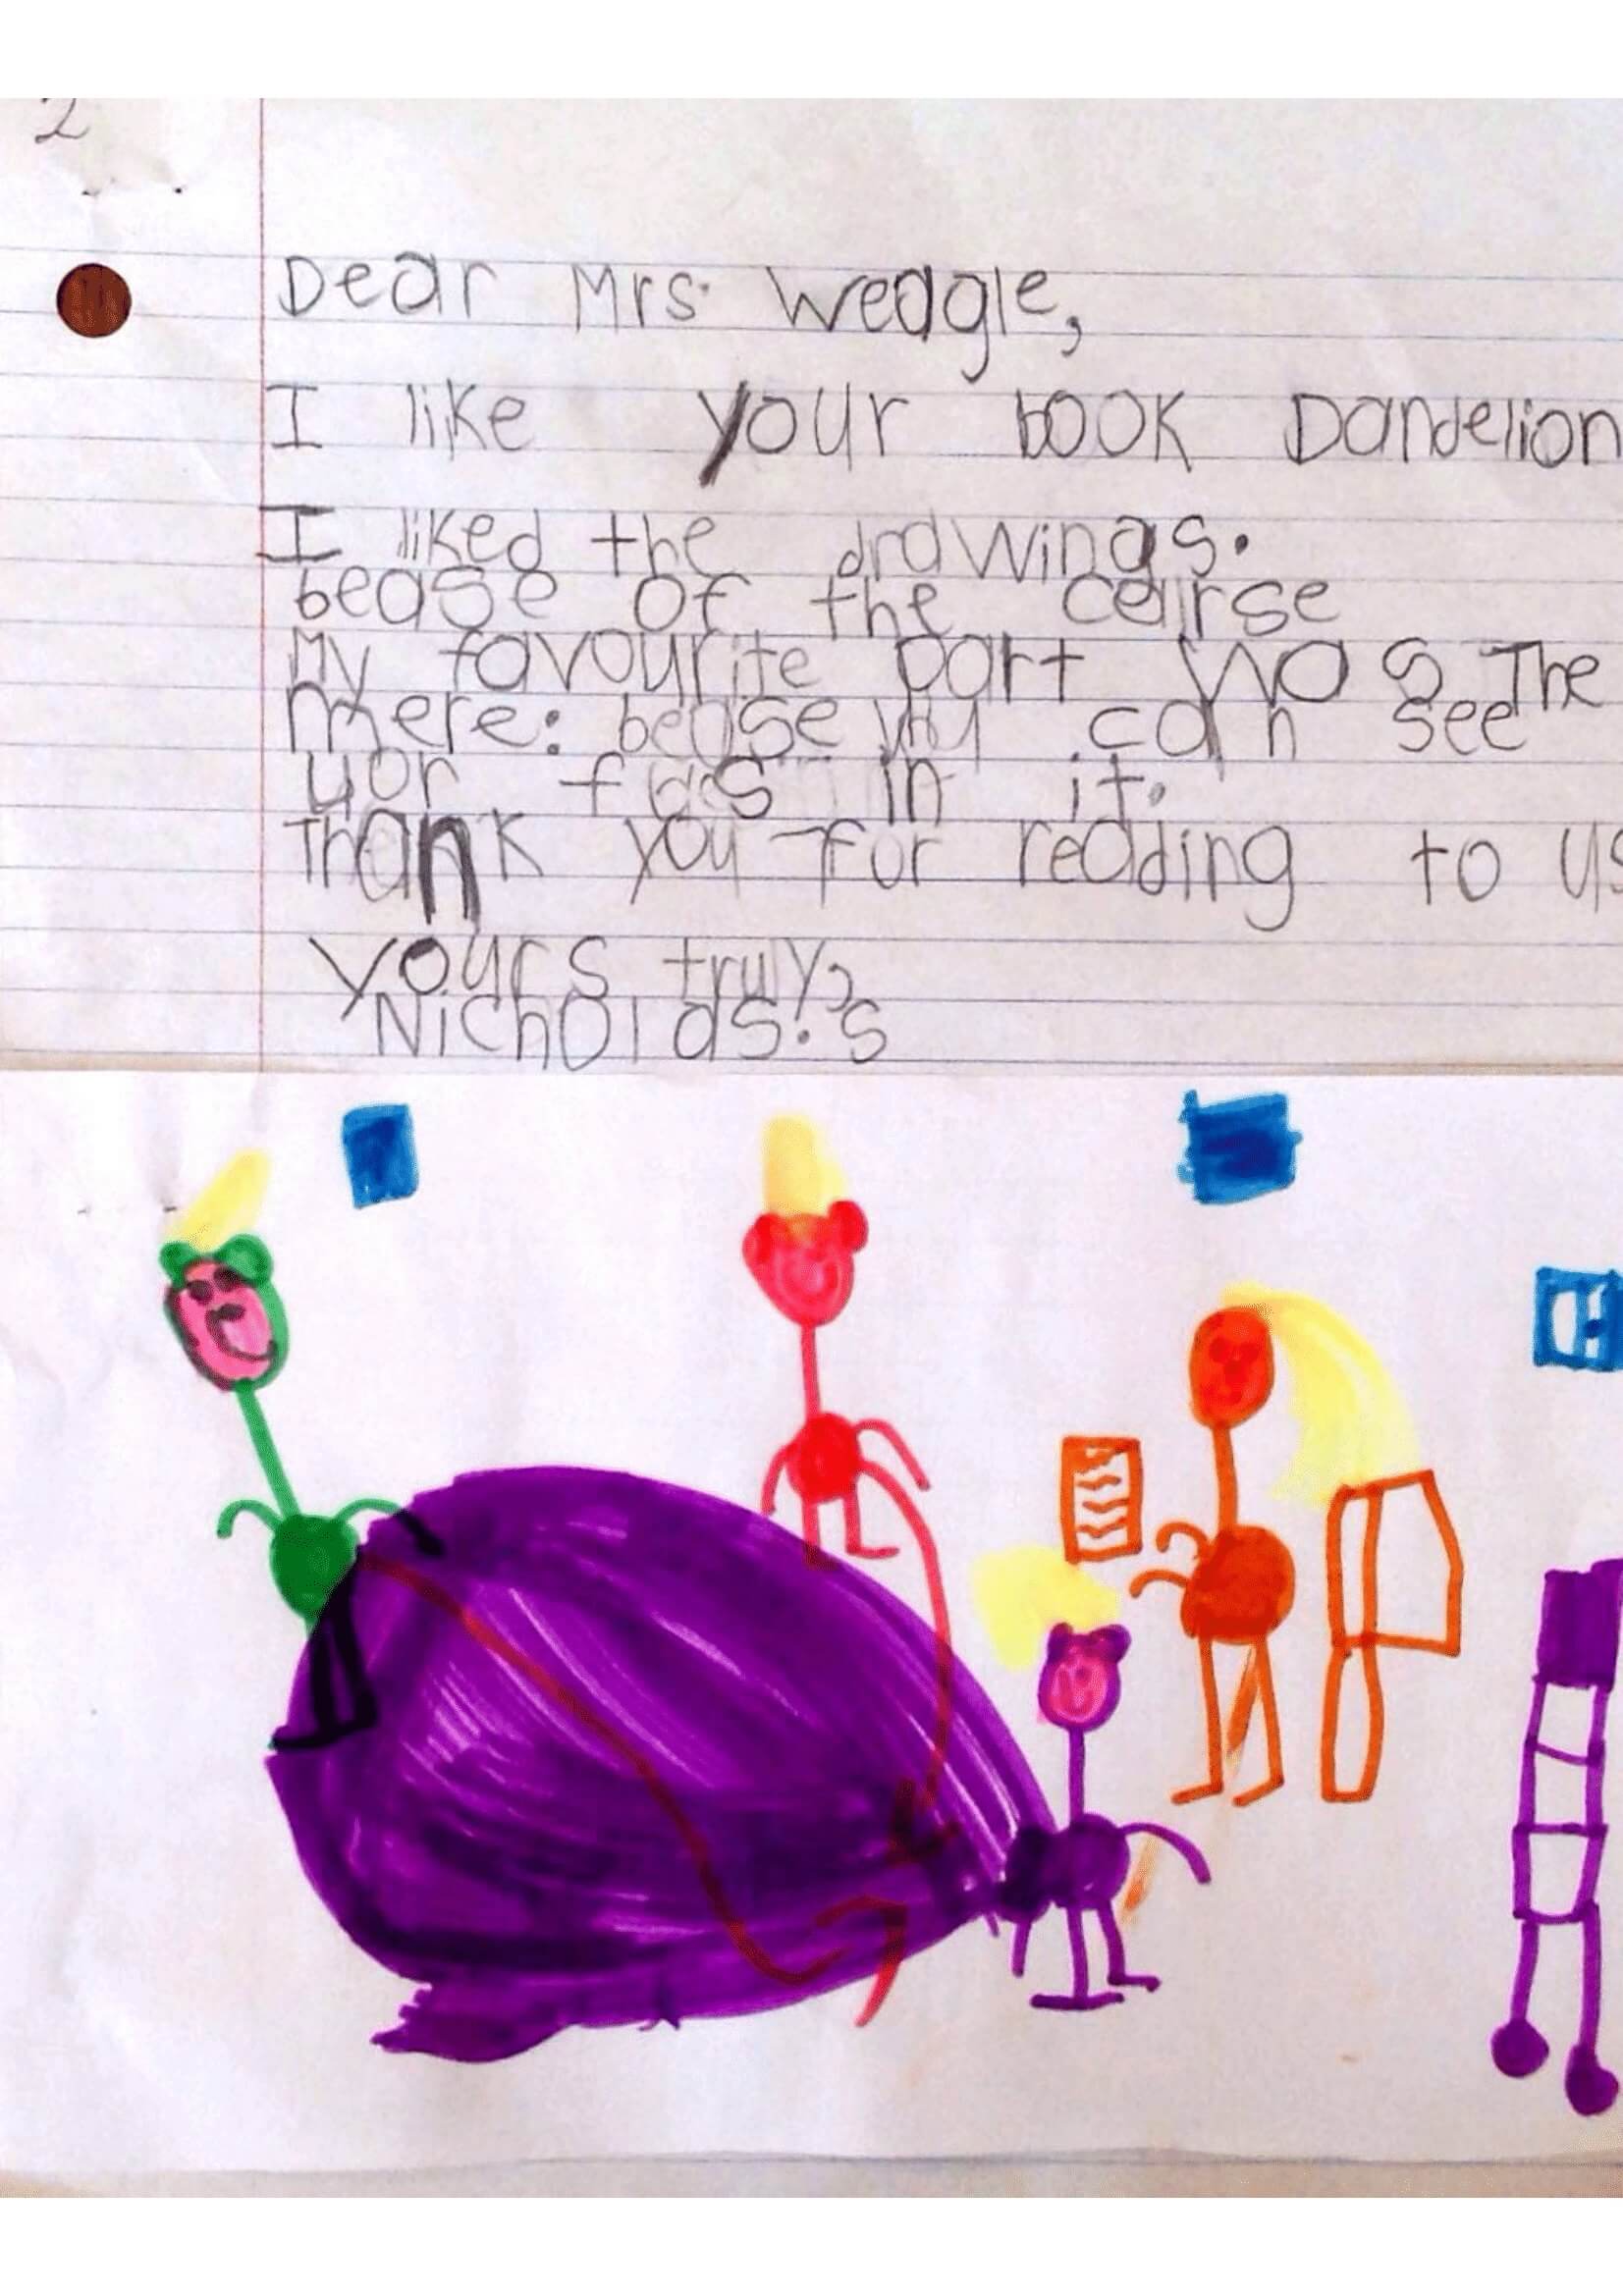 2
Dear Mrs. Weagle,
I like your book Dandelion
I liked the drawings.
bease of the cairse
My favourite part was The
mere: bease you can see
yor fas in it.
Thank you for reading to us
yours truly,
Nicholas.s